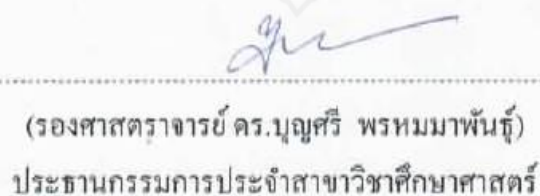 (รองศาสตราจารย์ ดร.บุญศรี พรหมมาพันธุ์)
ประธานกรรมการประจำสาขาวิชาศึกษาศาสตร์